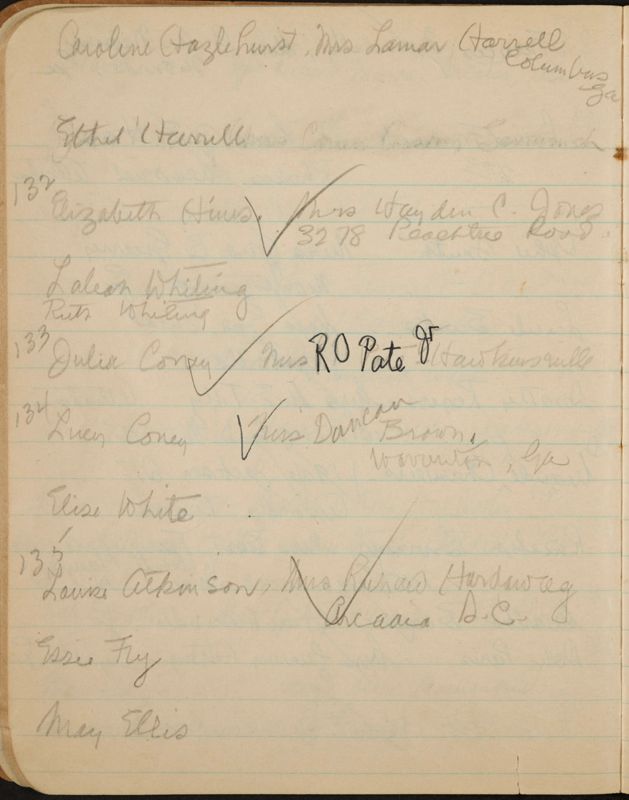 Caroline Hazlehurst, Mrs Lamar Harrell
Columbus
Ga
Ethel Harrell
132
Elizabeth Hines. Mrs Hayden C. Jones
3278 Peachtree Road.
Whiting
Ruth Whiting
133
Julia Coney Mrs R O Pate Jr Hawkinsville
134
Lucy Coney Mrs Duncan
Brown,
Ga
Elise White
135
Louise Atkinson, Mrs Richard Hardaway
Arcadia
Essie Fly
May Ellis